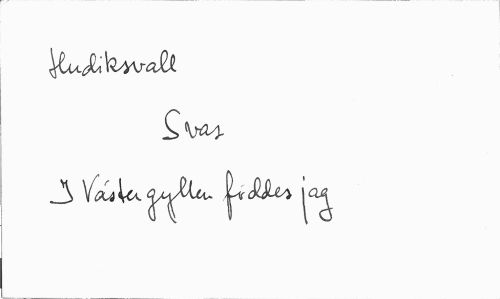 Hudiksvall
Svar
I Västergyllen föddes jag